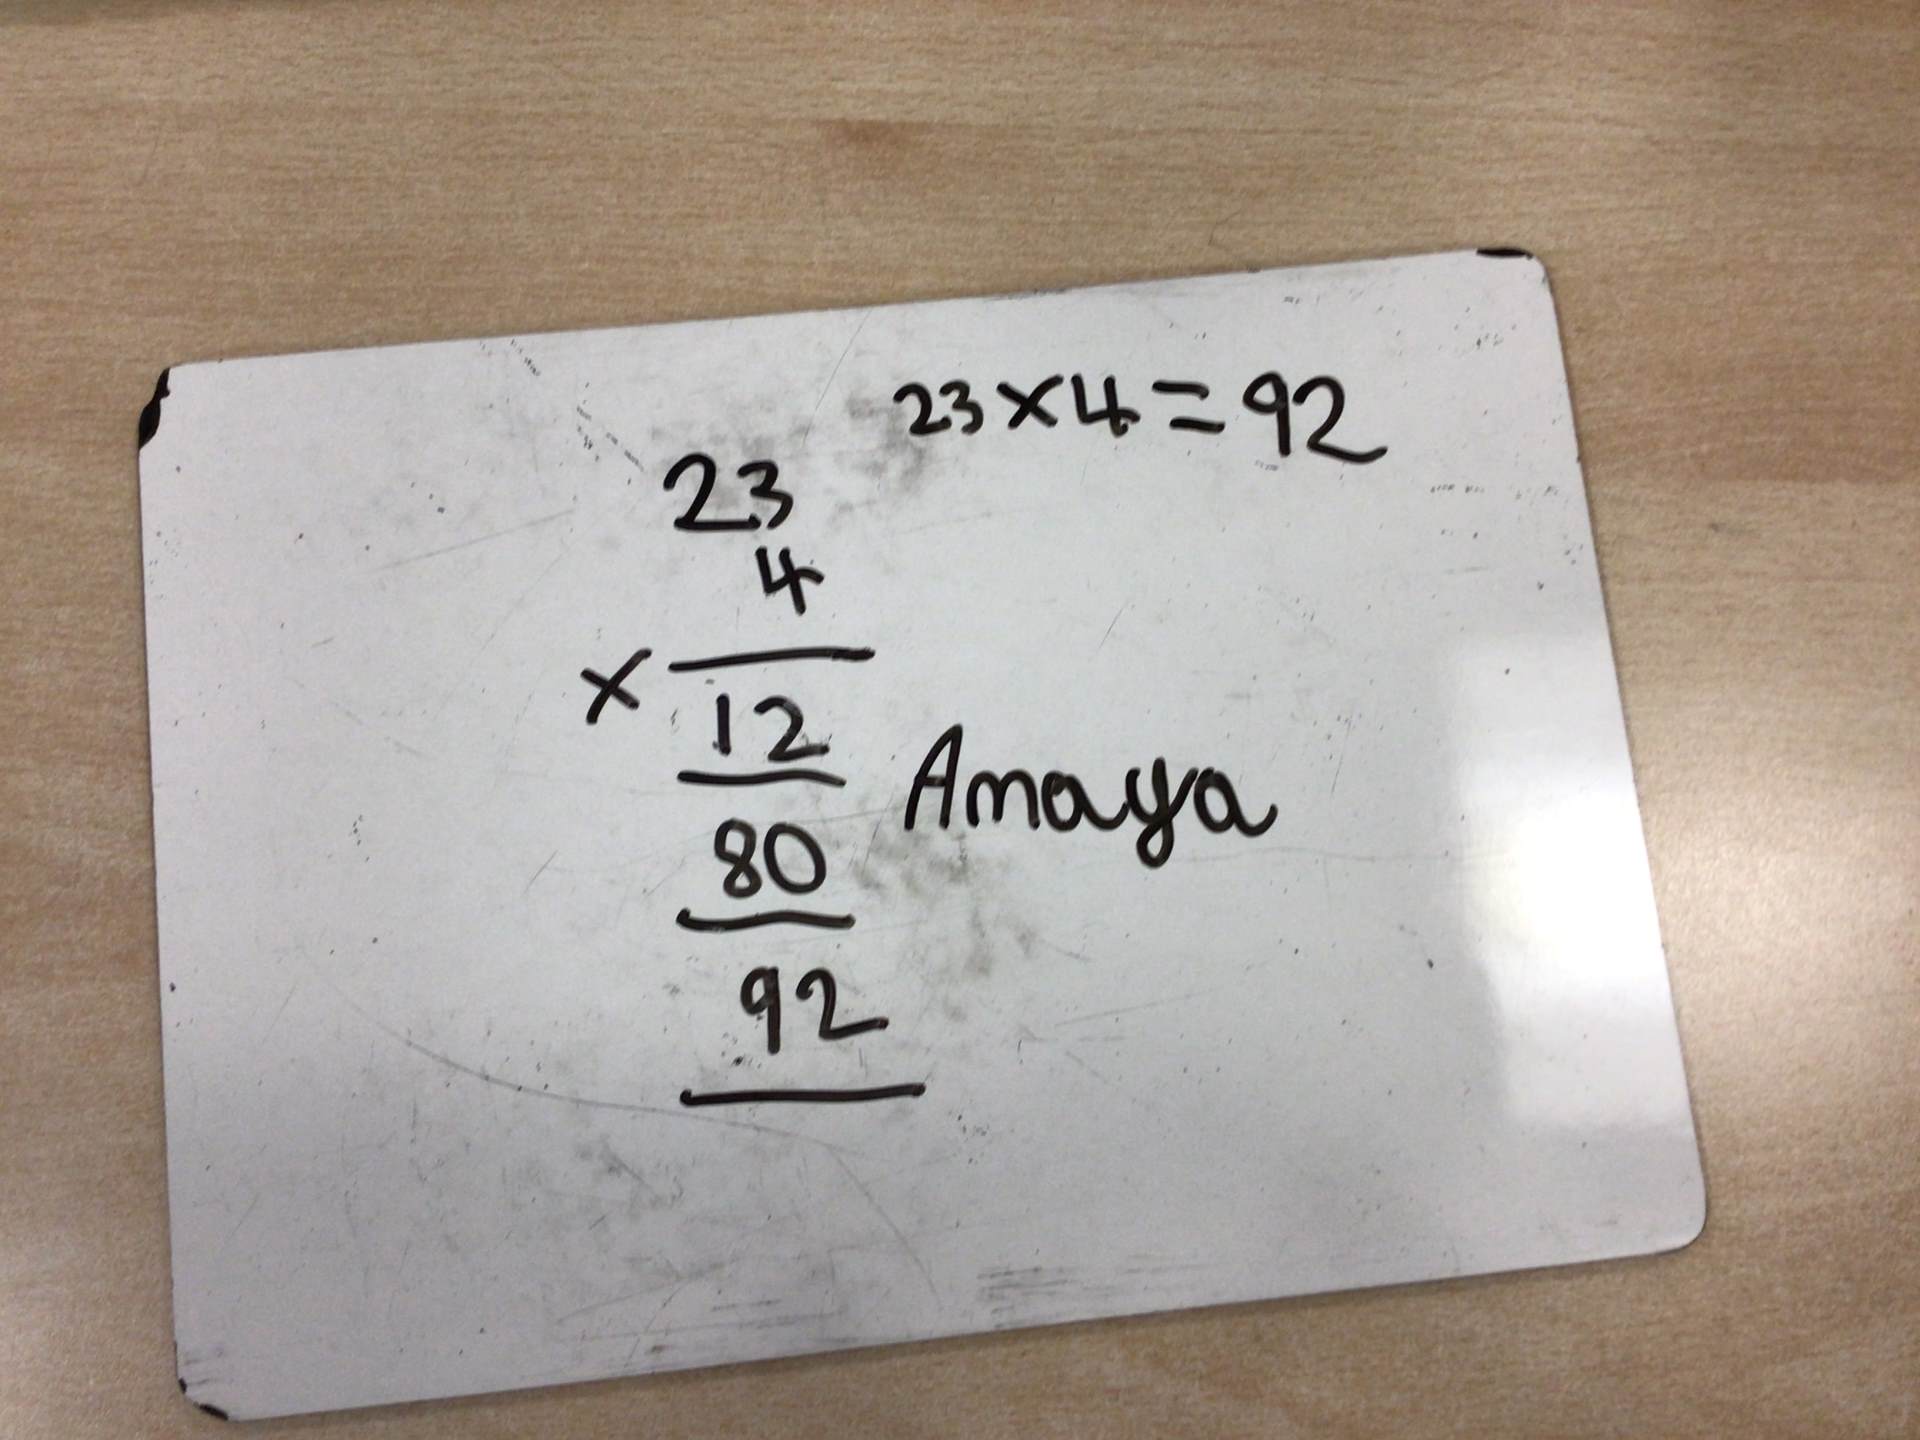 23×4=92
23
4
×
12
80
92
Amaya